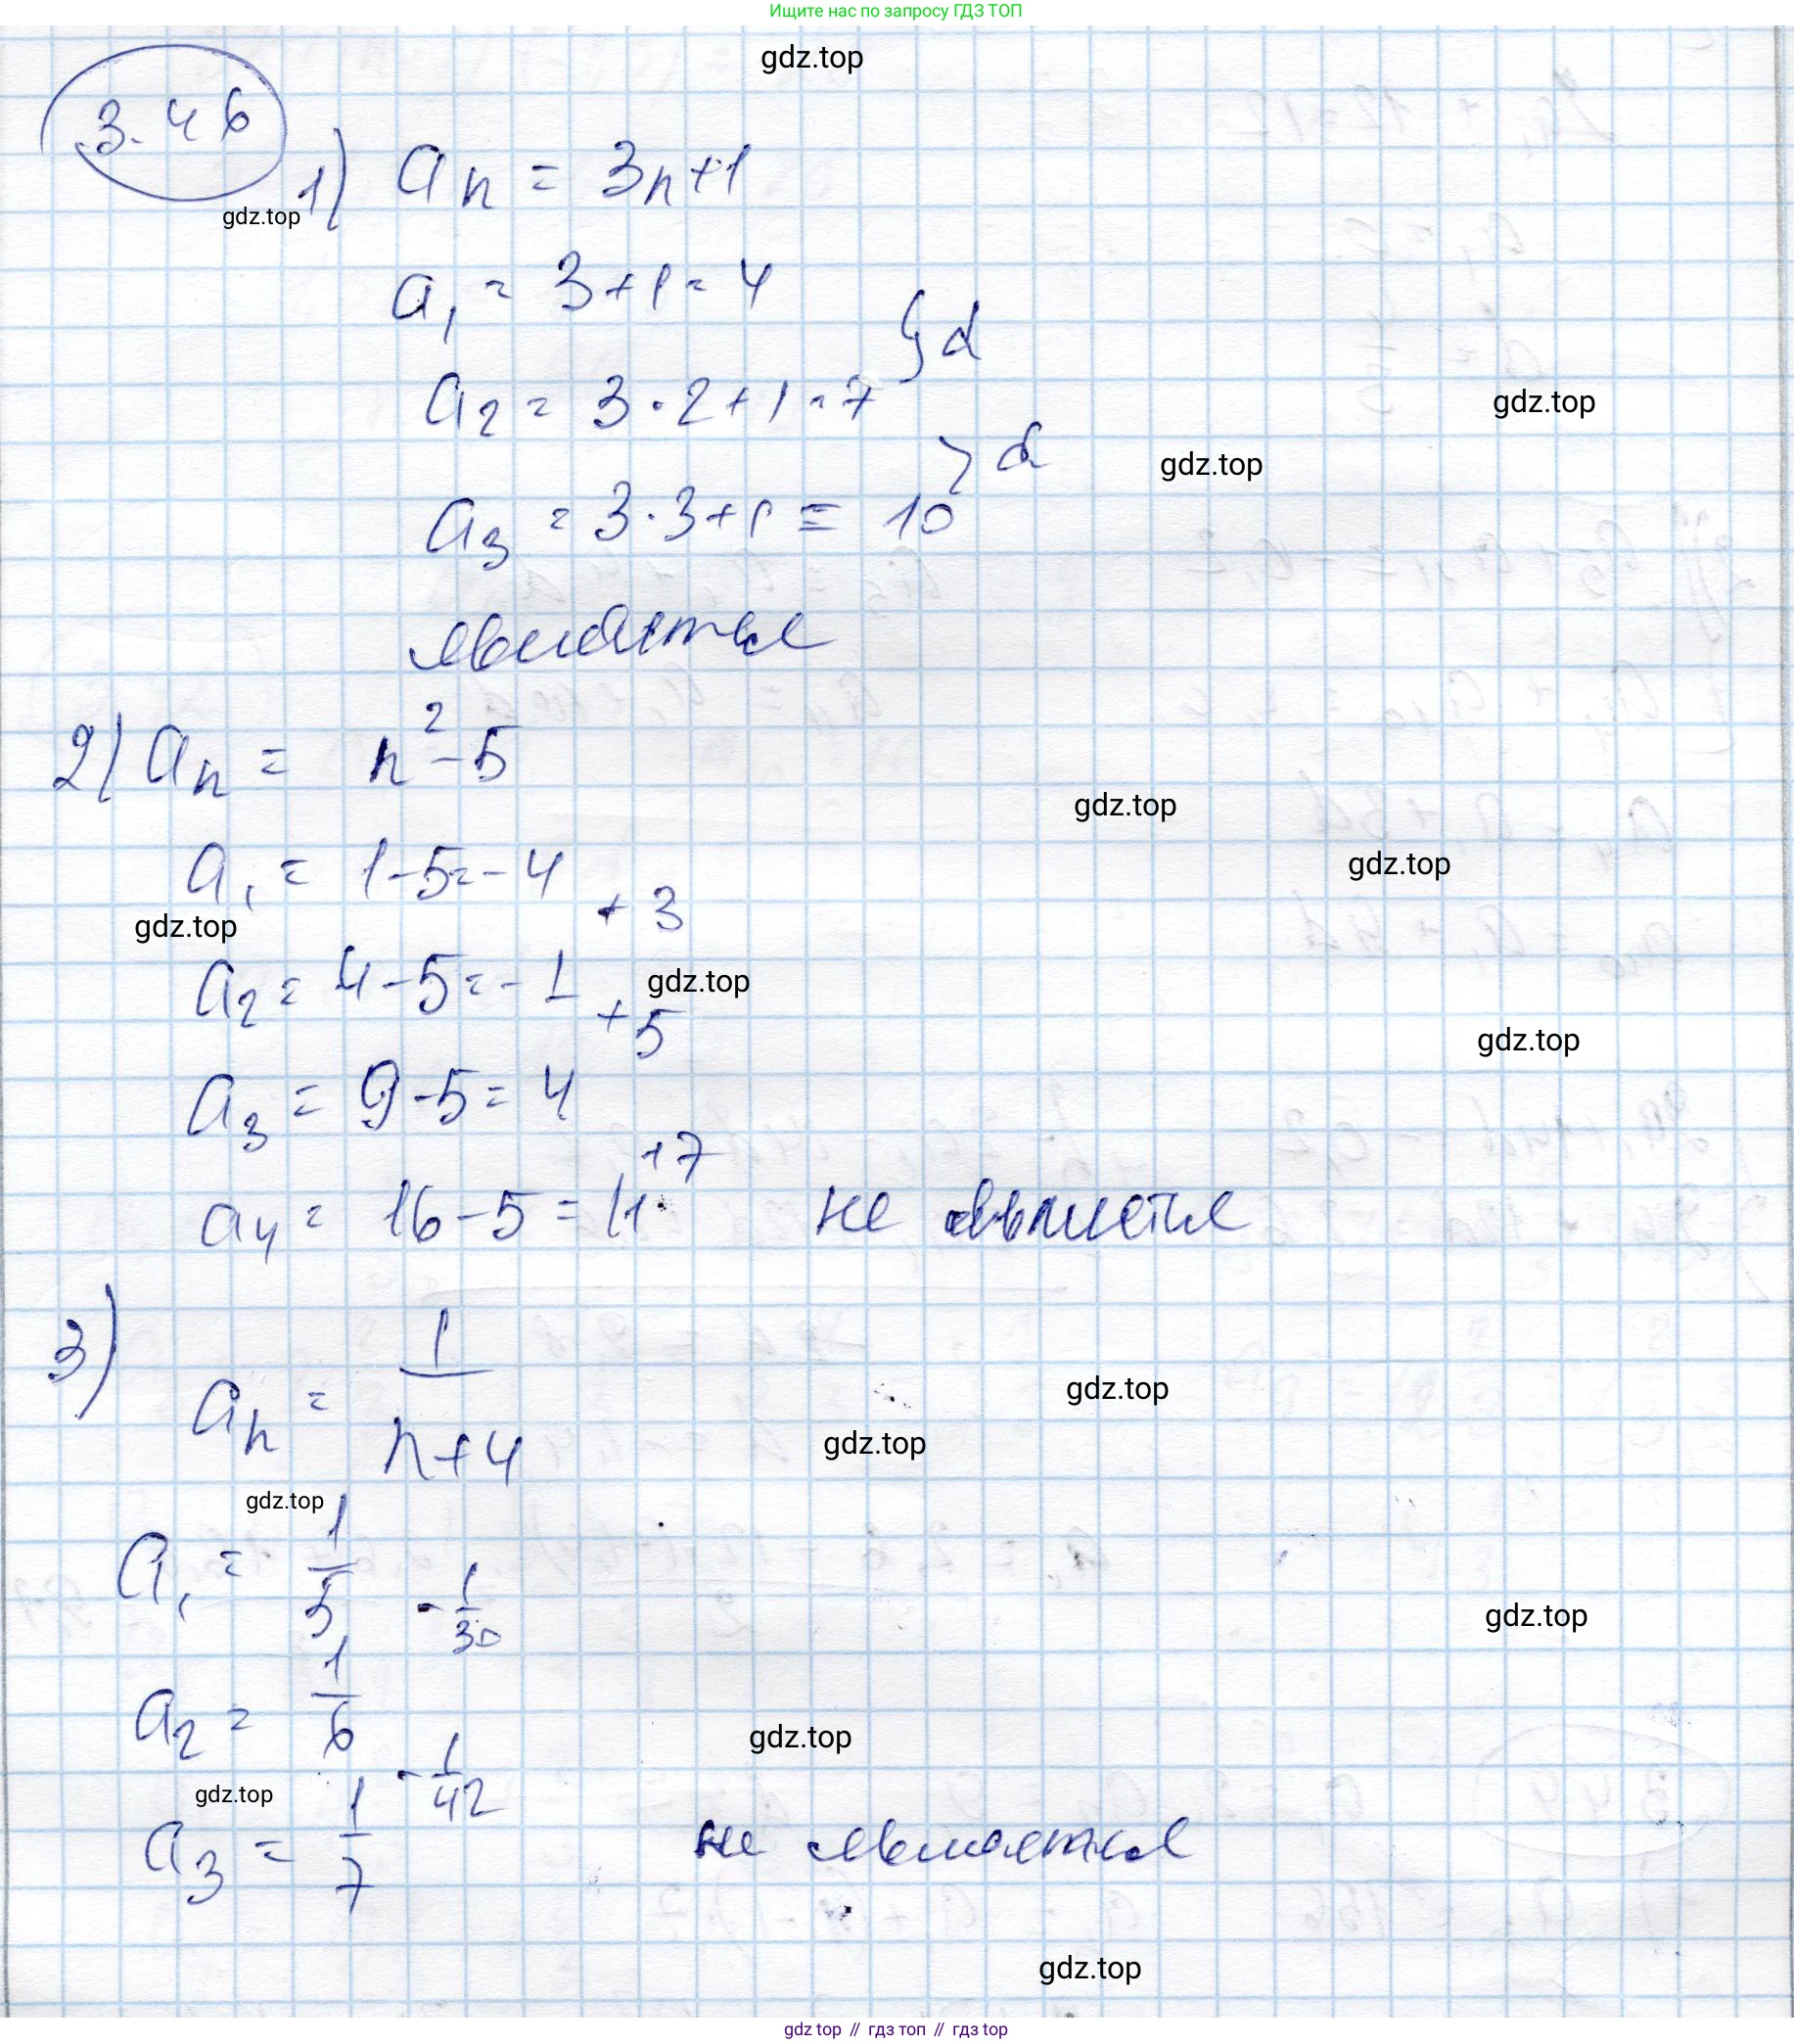 Ищите нас по запросу ГДЗ ТОП
gdz.top
3.46
1) aₙ = 3n+1
gdz.top
a₁ = 3+1 = 4
} d
a₂ = 3·2+1 = 7
gdz.top
} d
gdz.top
a₃ = 3·3+1 = 10
является
2) aₙ = n²-5
gdz.top
a₁ = 1-5 = -4
gdz.top
+3
gdz.top
a₂ = 4-5 = -1
gdz.top
+5
gdz.top
a₃ = 9-5 = 4
+7
a₄ = 16-5 = 11 не является
3) aₙ = 1/(n+4)
gdz.top
gdz.top
gdz.top
a₁ = 1/5
-1/30
gdz.top
a₂ = 1/6
gdz.top
-1/42
gdz.top
a₃ = 1/7 не является
gdz.top
gdz top // гдз топ // гдз top